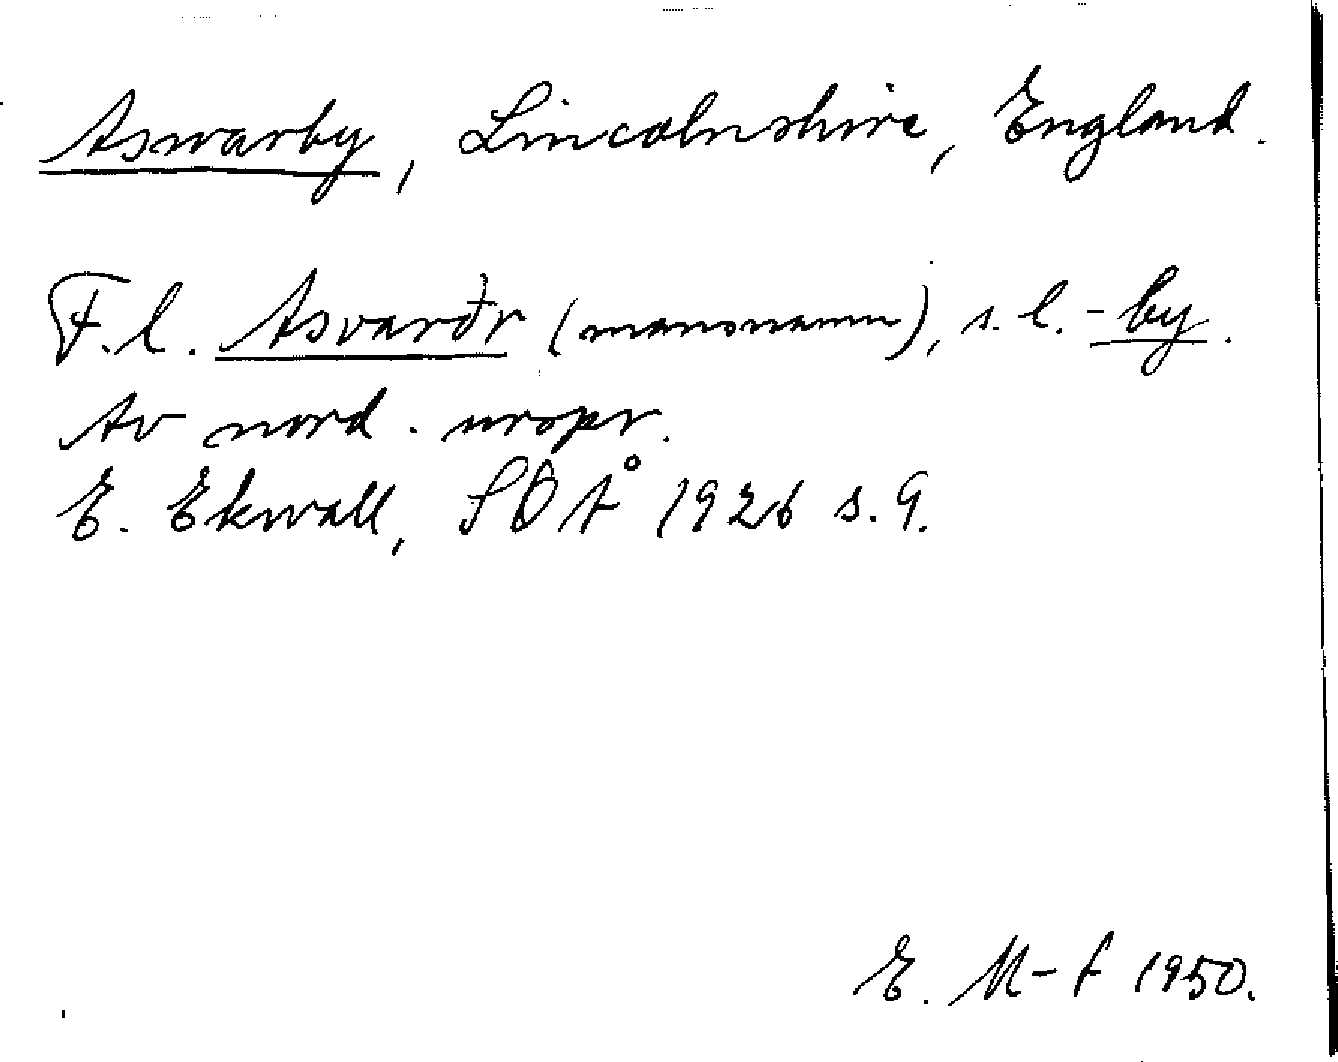 Aswarby, Lincolnshire, England.
F.l. Asvarðr (mansnamn), s.l. -by.
Av nord. urspr.
E. Ekwall, SOÅ 1926 s. 9.
E. M-t 1950.